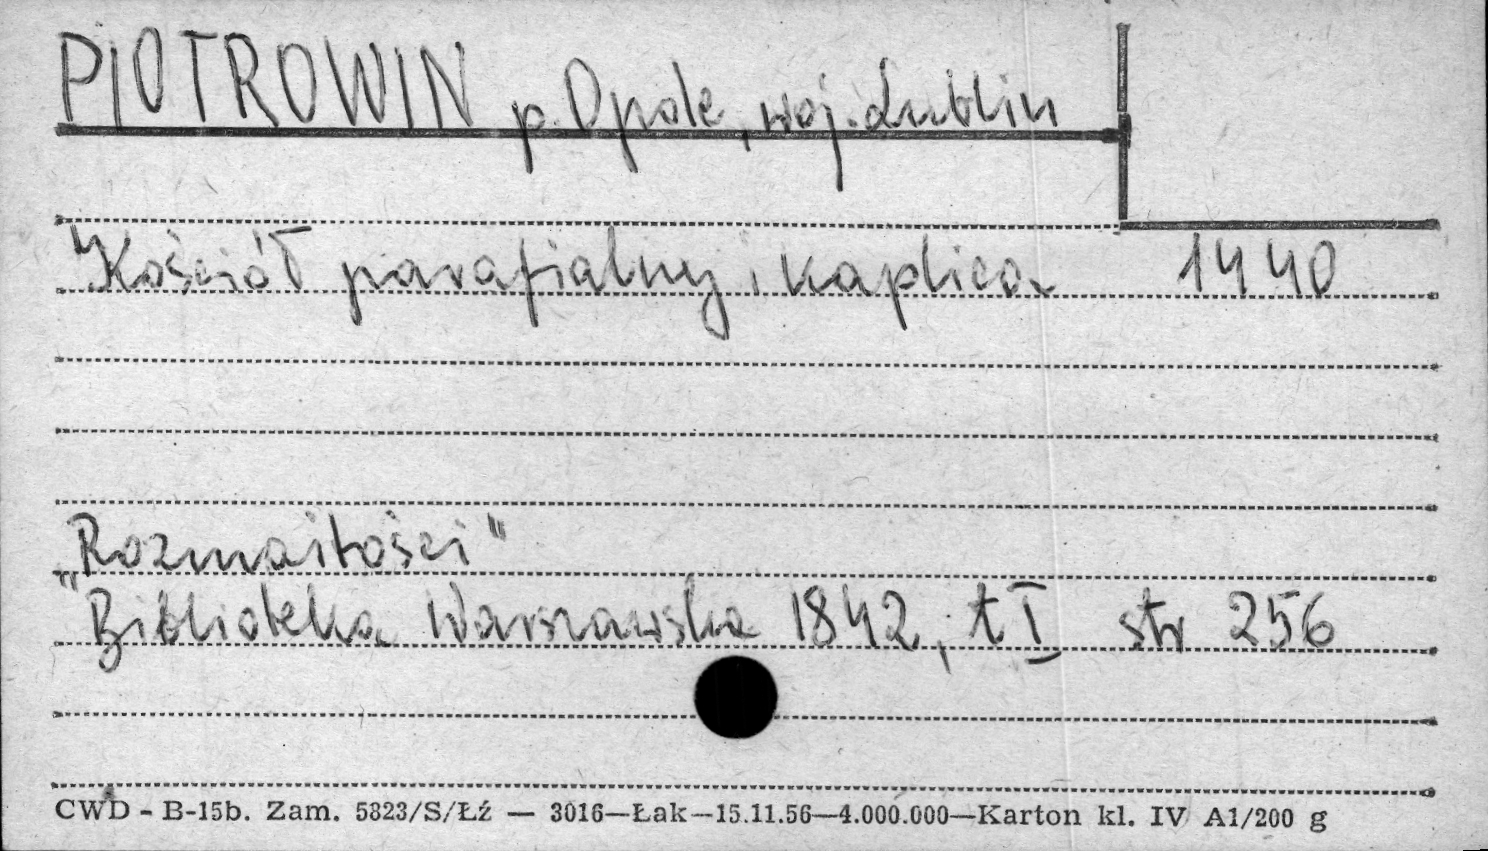 PIOTROWIN p. Opole, woj. Lublin
Kościół parafialny i kaplica 1440
„Rozmaitości"
"Biblioteka Warszawska 1842, t I str 256
CWD - B-15b. Zam. 5823/S/Łź — 3016—Łak—15.11.56—4.000.000—Karton kl. IV A1/200 g